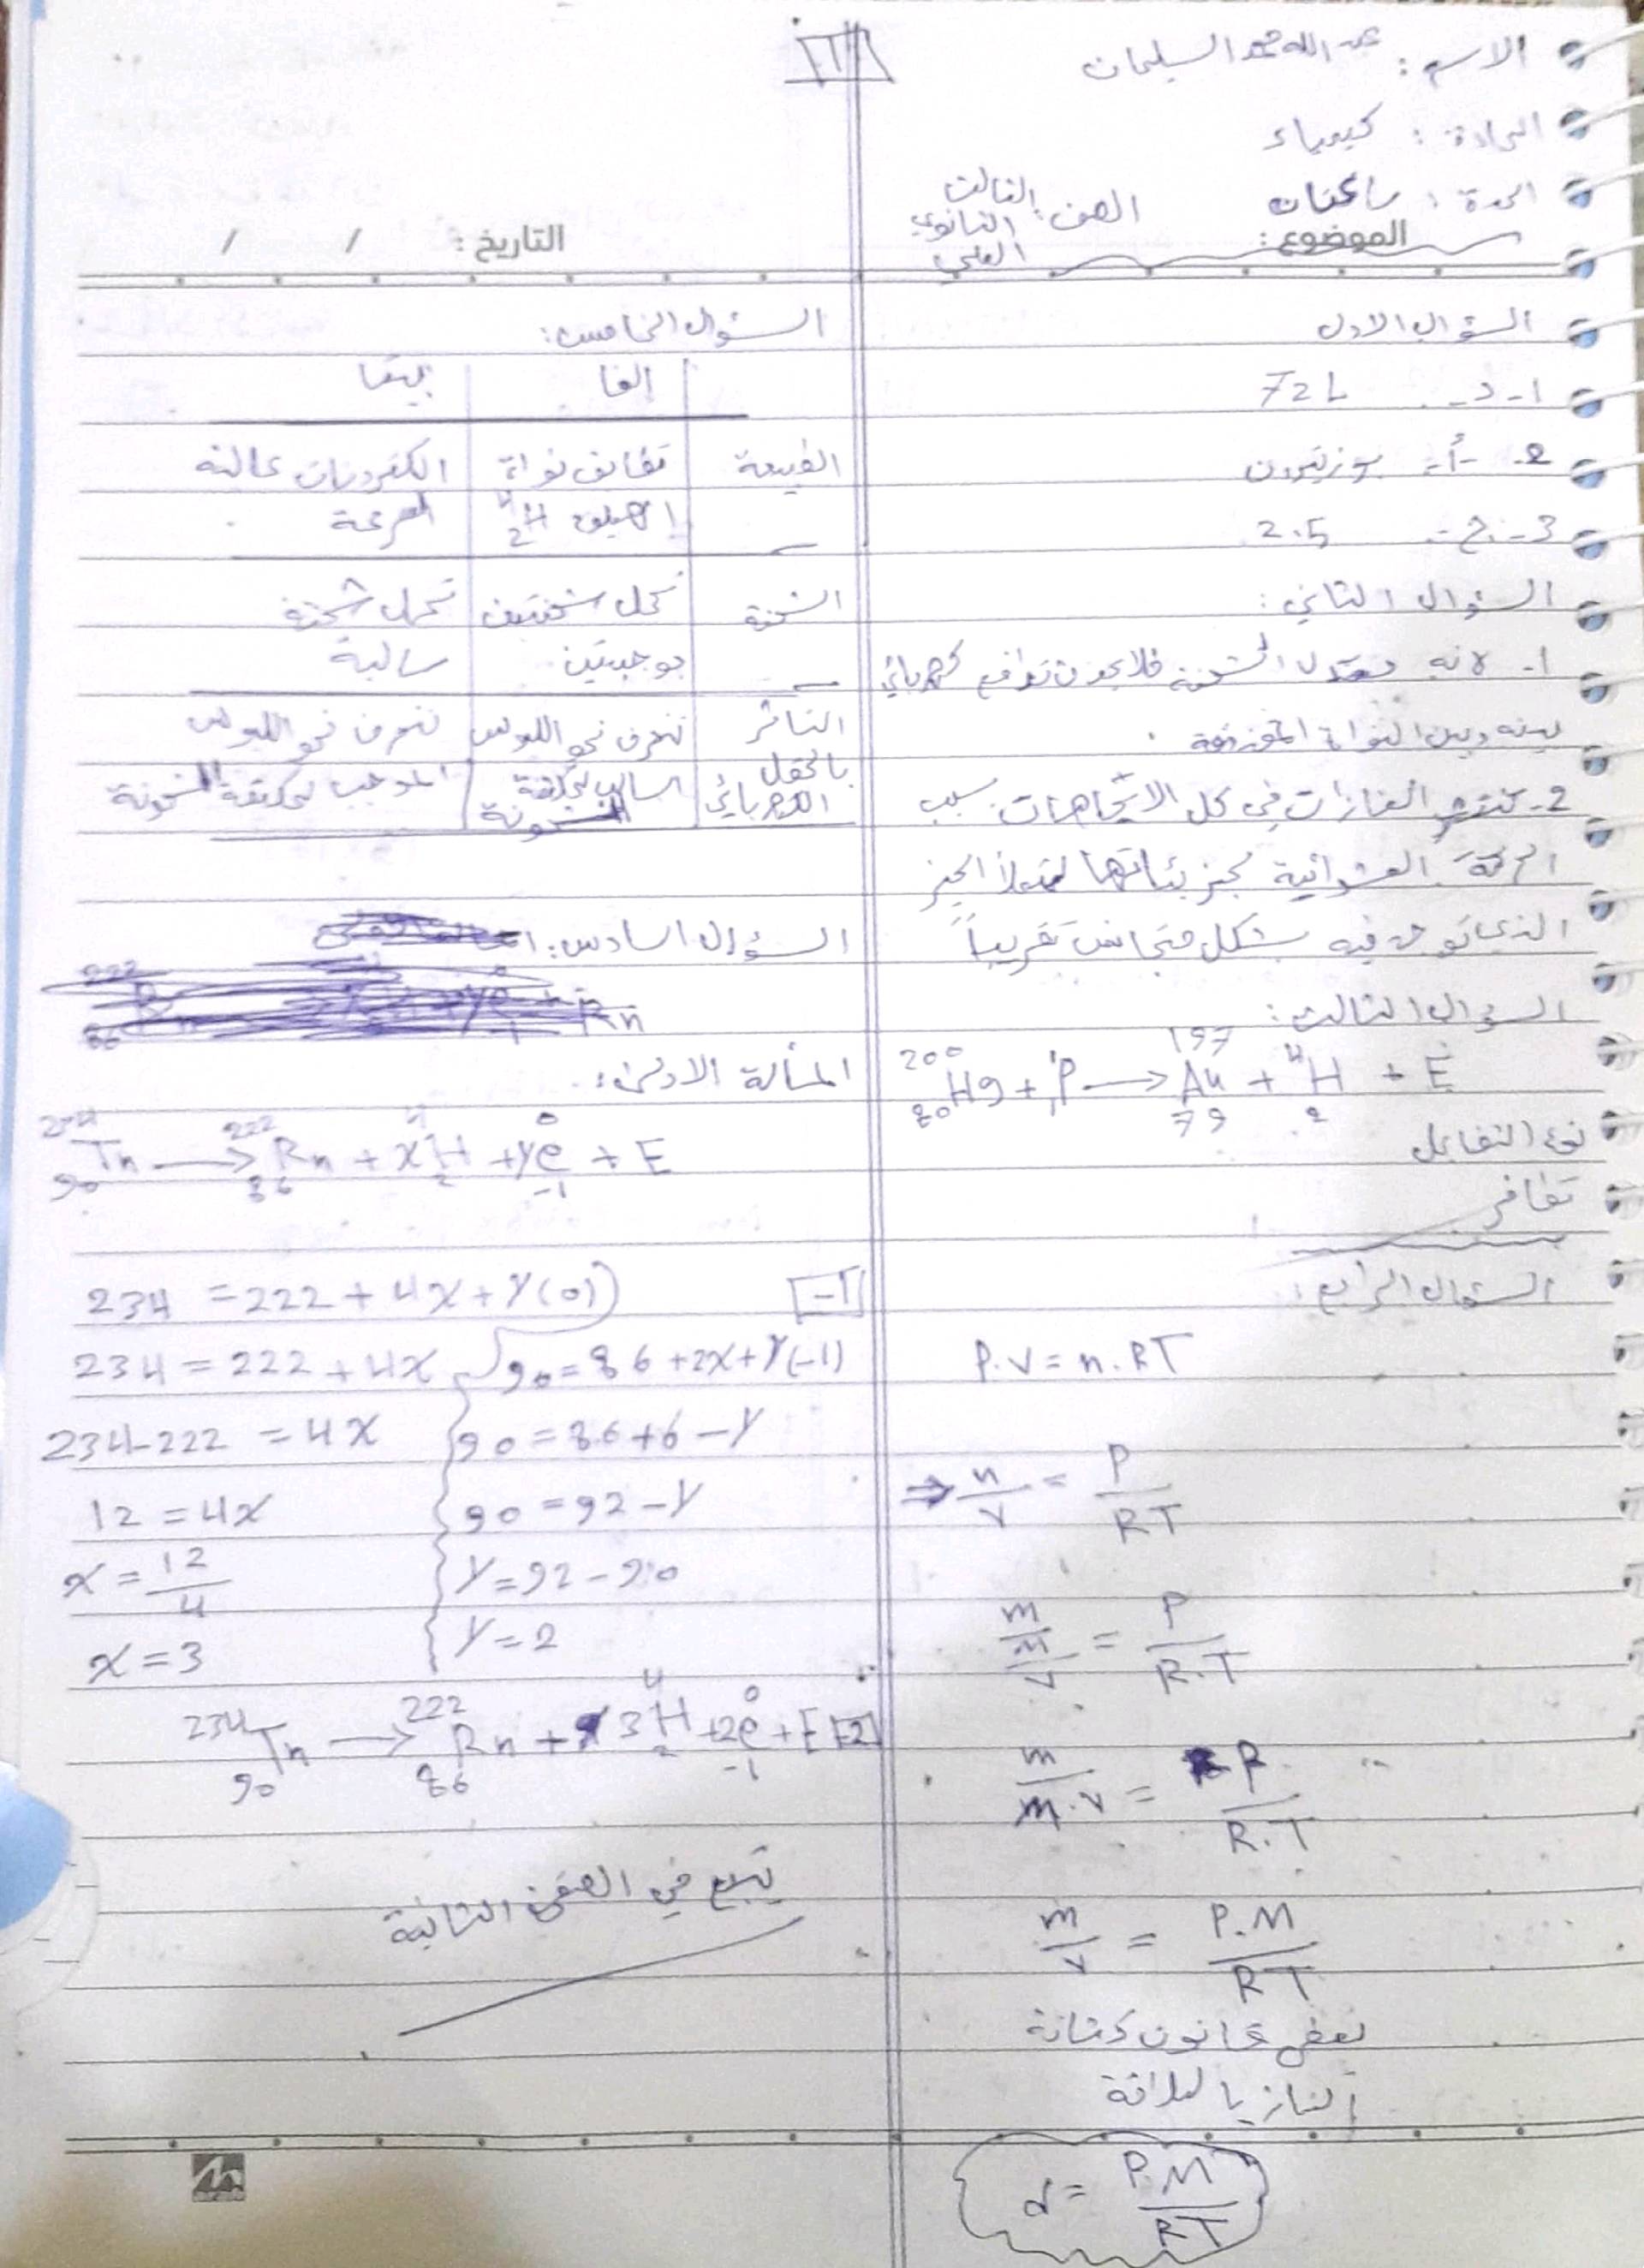 الاسم: عبد الله محمد السليمان
المادة: كيمياء
المدة: ساعتان
الصف: الثالث
الثانوي
العلمي
الموضوع:
التاريخ: / /
السؤال الاول
1- د- 72L
2- أ- بوزيترون
3- ج- 2.5
السؤال الثاني:
1- لانه معتدل الشحنة فلا يحدث تدافع كهربائي
بينه وبين النواة المقذوفة.
2- تنتشر الغازات في كل الاتجاهات بسبب
الحركة العشوائية لجزيئاتها لتملأ الحيز
الذي توجد فيه بشكل متجانس تقريباً
السؤال الثالث:
²⁰⁰₈₀Hg + ¹₁P → ¹⁹⁷₇₉Au + ⁴₂H + E
نوع التفاعل
تطافر
السؤال الرابع:
P.V = n.RT
⇒ n/V = P/RT
m/M/V = P/R.T
m/M.V = P/R.T
m/V = P.M/RT
نعطي قانون كثافة
الغاز بالعلاقة
d = P.M/RT
السؤال الخامس:
الفا بيتا
الطبيعة تطابق نواة الكترونات عالية
الهيليوم ⁴₂H السرعة
الشحنة تحمل شحنتين تحمل شحنة
موجبتين سالبة
التأثر تنحرف نحو اللبوس تنحرف نحو اللبوس
بالحقل السالب لمكثفة الموجب لمكثفة مشحونة
الكهربائي مشحونة
السؤال السادس:
المسألة الاولى:
²³⁴₉₀Tn → ²²²₈₆Rn + x⁴₂H + y⁰₋₁e + E
-1
234 = 222 + 4x + y(0)
234 = 222 + 4x 90 = 86 + 2x + y(-1)
234-222 = 4x 90 = 86+6 - y
12 = 4x 90 = 92 - y
x = 12/4 y = 92 - 90
x = 3 y = 2
²³⁴₉₀Tn → ²²²₈₆Rn + 3⁴₂H + 2⁰₋₁e + E -2
يتبع في الصفحة الثانية